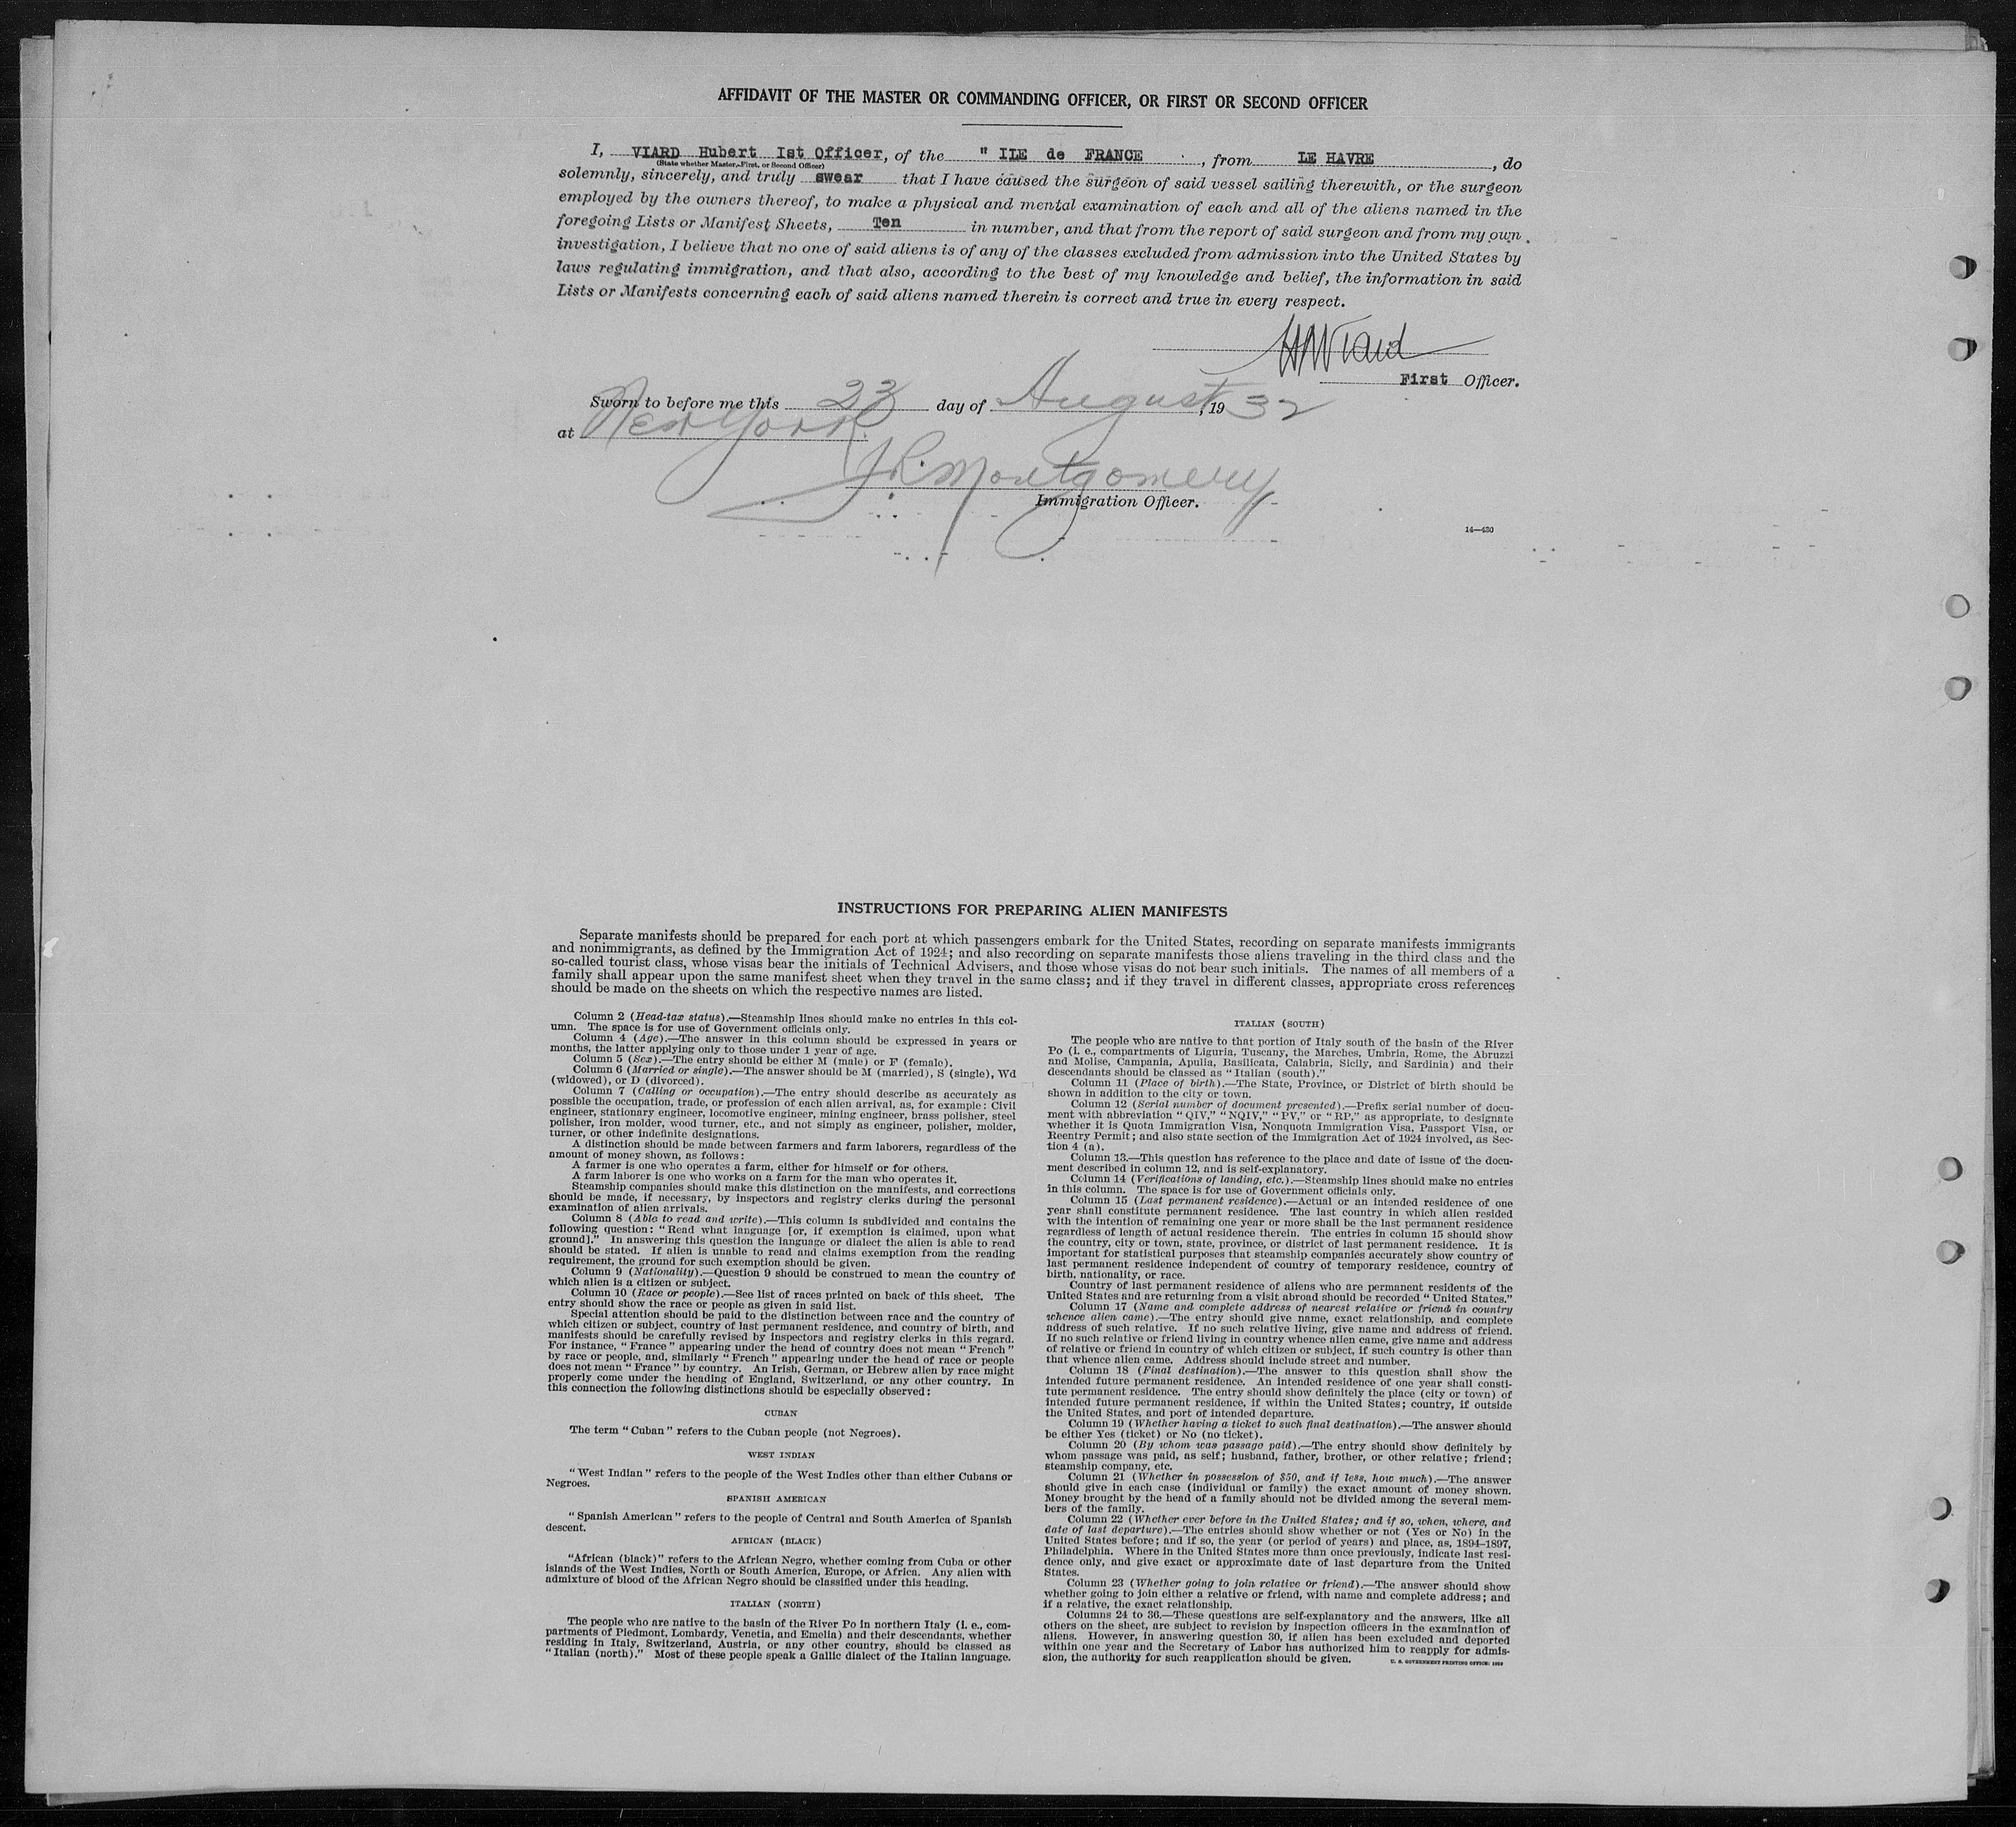 AFFIDAVIT OF THE MASTER OR COMMANDING OFFICER, OR FIRST OR SECOND OFFICER
I, VIARD Hubert Ist Officer, of the " ILE de FRANCE , from LE HAVRE , do
(State whether Master, First, or Second Officer)
solemnly, sincerely, and truly swear that I have caused the surgeon of said vessel sailing therewith, or the surgeon
employed by the owners thereof, to make a physical and mental examination of each and all of the aliens named in the
foregoing Lists or Manifest Sheets, Ten in number, and that from the report of said surgeon and from my own
investigation, I believe that no one of said aliens is of any of the classes excluded from admission into the United States by
laws regulating immigration, and that also, according to the best of my knowledge and belief, the information in said
Lists or Manifests concerning each of said aliens named therein is correct and true in every respect.
HViard
First Officer.
Sworn to before me this 23 day of August, 1932
at New York
J R. Montgomery
Immigration Officer.
14—430
INSTRUCTIONS FOR PREPARING ALIEN MANIFESTS
Separate manifests should be prepared for each port at which passengers embark for the United States, recording on separate manifests immigrants
and nonimmigrants, as defined by the Immigration Act of 1924; and also recording on separate manifests those aliens traveling in the third class and the
so-called tourist class, whose visas bear the initials of Technical Advisers, and those whose visas do not bear such initials. The names of all members of a
family shall appear upon the same manifest sheet when they travel in the same class; and if they travel in different classes, appropriate cross references
should be made on the sheets on which the respective names are listed.
Column 2 (Head-tax status).—Steamship lines should make no entries in this col-
umn. The space is for use of Government officials only.
Column 4 (Age).—The answer in this column should be expressed in years or
months, the latter applying only to those under 1 year of age.
Column 5 (Sex).—The entry should be either M (male) or F (female).
Column 6 (Married or single).—The answer should be M (married), S (single), Wd
(widowed), or D (divorced).
Column 7 (Calling or occupation).—The entry should describe as accurately as
possible the occupation, trade, or profession of each alien arrival, as, for example: Civil
engineer, stationary engineer, locomotive engineer, mining engineer, brass polisher, steel
polisher, iron molder, wood turner, etc., and not simply as engineer, polisher, molder,
turner, or other indefinite designations.
A distinction should be made between farmers and farm laborers, regardless of the
amount of money shown, as follows:
A farmer is one who operates a farm, either for himself or for others.
A farm laborer is one who works on a farm for the man who operates it.
Steamship companies should make this distinction on the manifests, and corrections
should be made, if necessary, by inspectors and registry clerks during the personal
examination of alien arrivals.
Column 8 (Able to read and write).—This column is subdivided and contains the
following question: "Read what language [or, if exemption is claimed, upon what
ground]." In answering this question the language or dialect the alien is able to read
should be stated. If alien is unable to read and claims exemption from the reading
requirement, the ground for such exemption should be given.
Column 9 (Nationality).—Question 9 should be construed to mean the country of
which alien is a citizen or subject.
Column 10 (Race or people).—See list of races printed on back of this sheet. The
entry should show the race or people as given in said list.
Special attention should be paid to the distinction between race and the country of
which citizen or subject, country of last permanent residence, and country of birth, and
manifests should be carefully revised by inspectors and registry clerks in this regard.
For instance, "France" appearing under the head of country does not mean "French"
by race or people, and, similarly "French" appearing under the head of race or people
does not mean "France" by country. An Irish, German, or Hebrew alien by race might
properly come under the heading of England, Switzerland, or any other country. In
this connection the following distinctions should be especially observed:
CUBAN
The term "Cuban" refers to the Cuban people (not Negroes).
WEST INDIAN
"West Indian" refers to the people of the West Indies other than either Cubans or
Negroes.
SPANISH AMERICAN
"Spanish American" refers to the people of Central and South America of Spanish
descent.
AFRICAN (BLACK)
"African (black)" refers to the African Negro, whether coming from Cuba or other
islands of the West Indies, North or South America, Europe, or Africa. Any alien with
admixture of blood of the African Negro should be classified under this heading.
ITALIAN (NORTH)
The people who are native to the basin of the River Po in northern Italy (i. e., com-
partments of Piedmont, Lombardy, Venetia, and Emelia) and their descendants, whether
residing in Italy, Switzerland, Austria, or any other country, should be classed as
"Italian (north)." Most of these people speak a Gallic dialect of the Italian language.
ITALIAN (SOUTH)
The people who are native to that portion of Italy south of the basin of the River
Po (i. e., compartments of Liguria, Tuscany, the Marches, Umbria, Rome, the Abruzzi
and Molise, Campania, Apulia, Basilicata, Calabria, Sicily, and Sardinia) and their
descendants should be classed as "Italian (south)."
Column 11 (Place of birth).—The State, Province, or District of birth should be
shown in addition to the city or town.
Column 12 (Serial number of document presented).—Prefix serial number of docu-
ment with abbreviation "QIV," "NQIV," "PV," or "RP," as appropriate, to designate
whether it is Quota Immigration Visa, Nonquota Immigration Visa, Passport Visa, or
Reentry Permit; and also state section of the Immigration Act of 1924 involved, as Sec-
tion 4 (a).
Column 13.—This question has reference to the place and date of issue of the docu-
ment described in column 12, and is self-explanatory.
Column 14 (Verifications of landing, etc.).—Steamship lines should make no entries
in this column. The space is for use of Government officials only.
Column 15 (Last permanent residence).—Actual or an intended residence of one
year shall constitute permanent residence. The last country in which alien resided
with the intention of remaining one year or more shall be the last permanent residence
regardless of length of actual residence therein. The entries in column 15 should show
the country, city or town, state, province, or district of last permanent residence. It is
important for statistical purposes that steamship companies accurately show country of
last permanent residence independent of country of temporary residence, country of
birth, nationality, or race.
Country of last permanent residence of aliens who are permanent residents of the
United States and are returning from a visit abroad should be recorded "United States."
Column 17 (Name and complete address of nearest relative or friend in country
whence alien came).—The entry should give name, exact relationship, and complete
address of such relative. If no such relative living, give name and address of friend.
If no such relative or friend living in country whence alien came, give name and address
of relative or friend in country of which citizen or subject, if such country is other than
that whence alien came. Address should include street and number.
Column 18 (Final destination).—The answer to this question shall show the
intended future permanent residence. An intended residence of one year shall consti-
tute permanent residence. The entry should show definitely the place (city or town) of
intended future permanent residence, if within the United States; country, if outside
the United States, and port of intended departure.
Column 19 (Whether having a ticket to such final destination).—The answer should
be either Yes (ticket) or No (no ticket).
Column 20 (By whom was passage paid).—The entry should show definitely by
whom passage was paid, as self; husband, father, brother, or other relative; friend;
steamship company, etc.
Column 21 (Whether in possession of $50, and if less, how much).—The answer
should give in each case (individual or family) the exact amount of money shown.
Money brought by the head of a family should not be divided among the several mem-
bers of the family.
Column 22 (Whether ever before in the United States; and if so, when, where, and
date of last departure).—The entries should show whether or not (Yes or No) in the
United States before; and if so, the year (or period of years) and place, as, 1894–1897,
Philadelphia. Where in the United States more than once previously, indicate last resi-
dence only, and give exact or approximate date of last departure from the United
States.
Column 23 (Whether going to join relative or friend).—The answer should show
whether going to join either a relative or friend, with name and complete address; and
if a relative, the exact relationship.
Columns 24 to 36.—These questions are self-explanatory and the answers, like all
others on the sheet, are subject to revision by inspection officers in the examination of
aliens. However, in answering question 30, if alien has been excluded and deported
within one year and the Secretary of Labor has authorized him to reapply for admis-
sion, the authority for such reapplication should be given.
U. S. GOVERNMENT PRINTING OFFICE: 1929